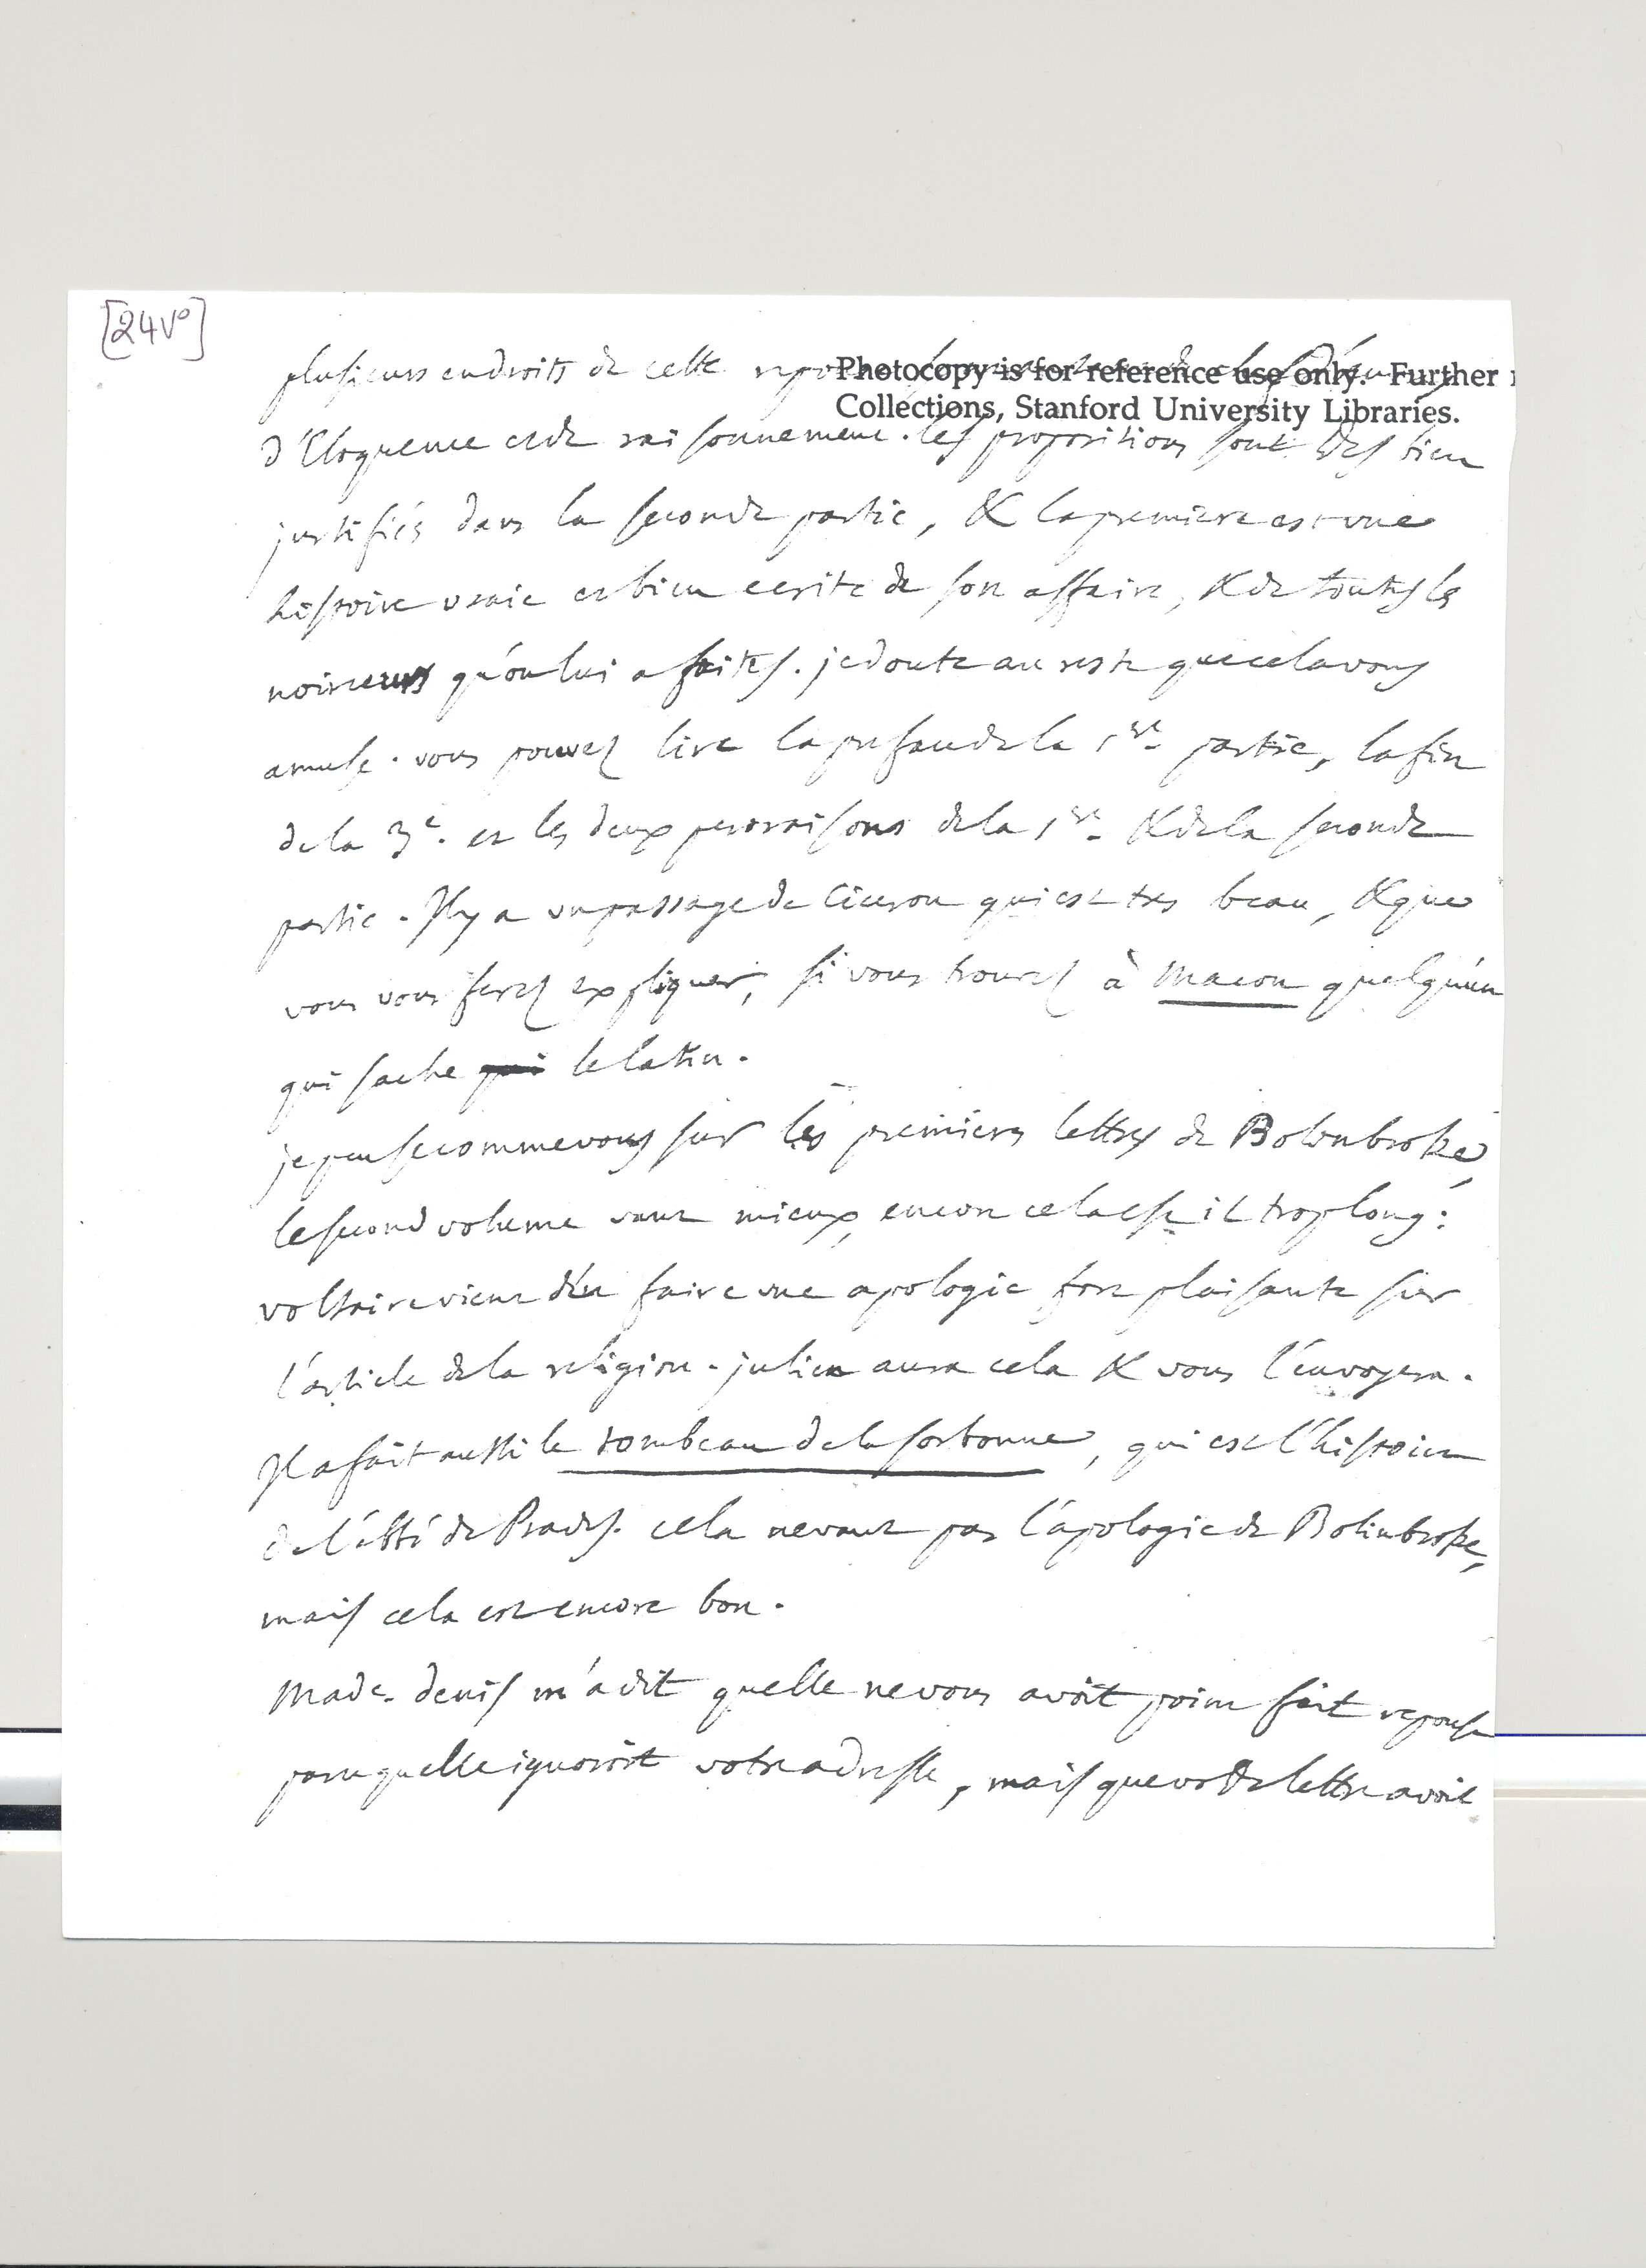 [24 v°]
plusieurs endroits de cette
Photocopy is for reference use only. Further
Collections, Stanford University Libraries.
d'Eloquence et de raisonnement. les propositions sont bien
justifiés dans la seconde partie, & la premiere est une
histoire vraie et bien ecrite de son affaire, & de toutes les
noirceurs qu'on lui a faites. je doute au reste que cela vous
amuse. vous pouvez lire la preface de la 1re. partie, la fin
de la 3e. et les deux peroraisons de la 1re. & de la seconde
partie. Il y a un passage de Ciceron qui est tres beau, & que
vous vous ferez expliquer, si vous trouvez à Macon quelqu'un
qui sache qui le latin.
je pense comme vous sur les premieres lettres de Bolinbroke,
le second volume vaut mieux, encore cela est il trop long:
voltaire vient d'en faire une apologie fort plaisante sur
l'article de la religion. julien aura cela & vous l'envoyera.
Il a fait aussi le tombeau de la sorbonne, qui est l'histoire
de l'abbé de Prades. cela ne vaut pas l'apologie de Bolinbroke,
mais cela est encore bon.
Made. denis m'a dit quelle ne vous avoit point fait reponse
parcequelle ignoroit votre adresse, mais que votre lettre avoit